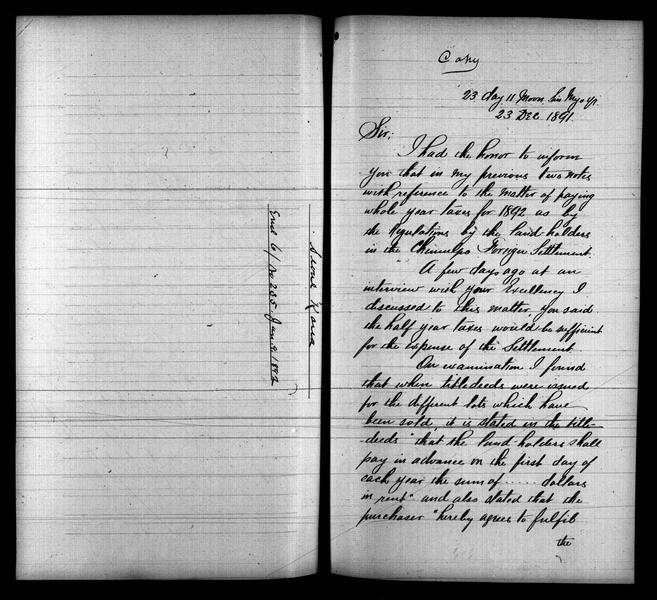 Encl 6/ No 235 Jan. 9. 1892
Copy
23 day 11 Moon Sin Myo Yr.
23 Dec 1891
Sir;
I had the honor to inform
you that in my previous two notes
with reference to the matter of paying
whole year taxes for 1892 as by
the Regulations by the land holders
in the Chemulpo Foreign Settlement.
A few days ago at an
interview with your Excellency I
discussed to this matter you said
the half year taxes would be sufficient
for the expense of the Settlement
On examination I found
that when title deeds were issued
for the different lots which have
been sold, it is stated in the title-
-deeds "that the land holders shall
pay in advance on the first day of
each year the sum of ...... dollars
in rent" and also stated that the
purchaser "hereby agrees to fulfil
the